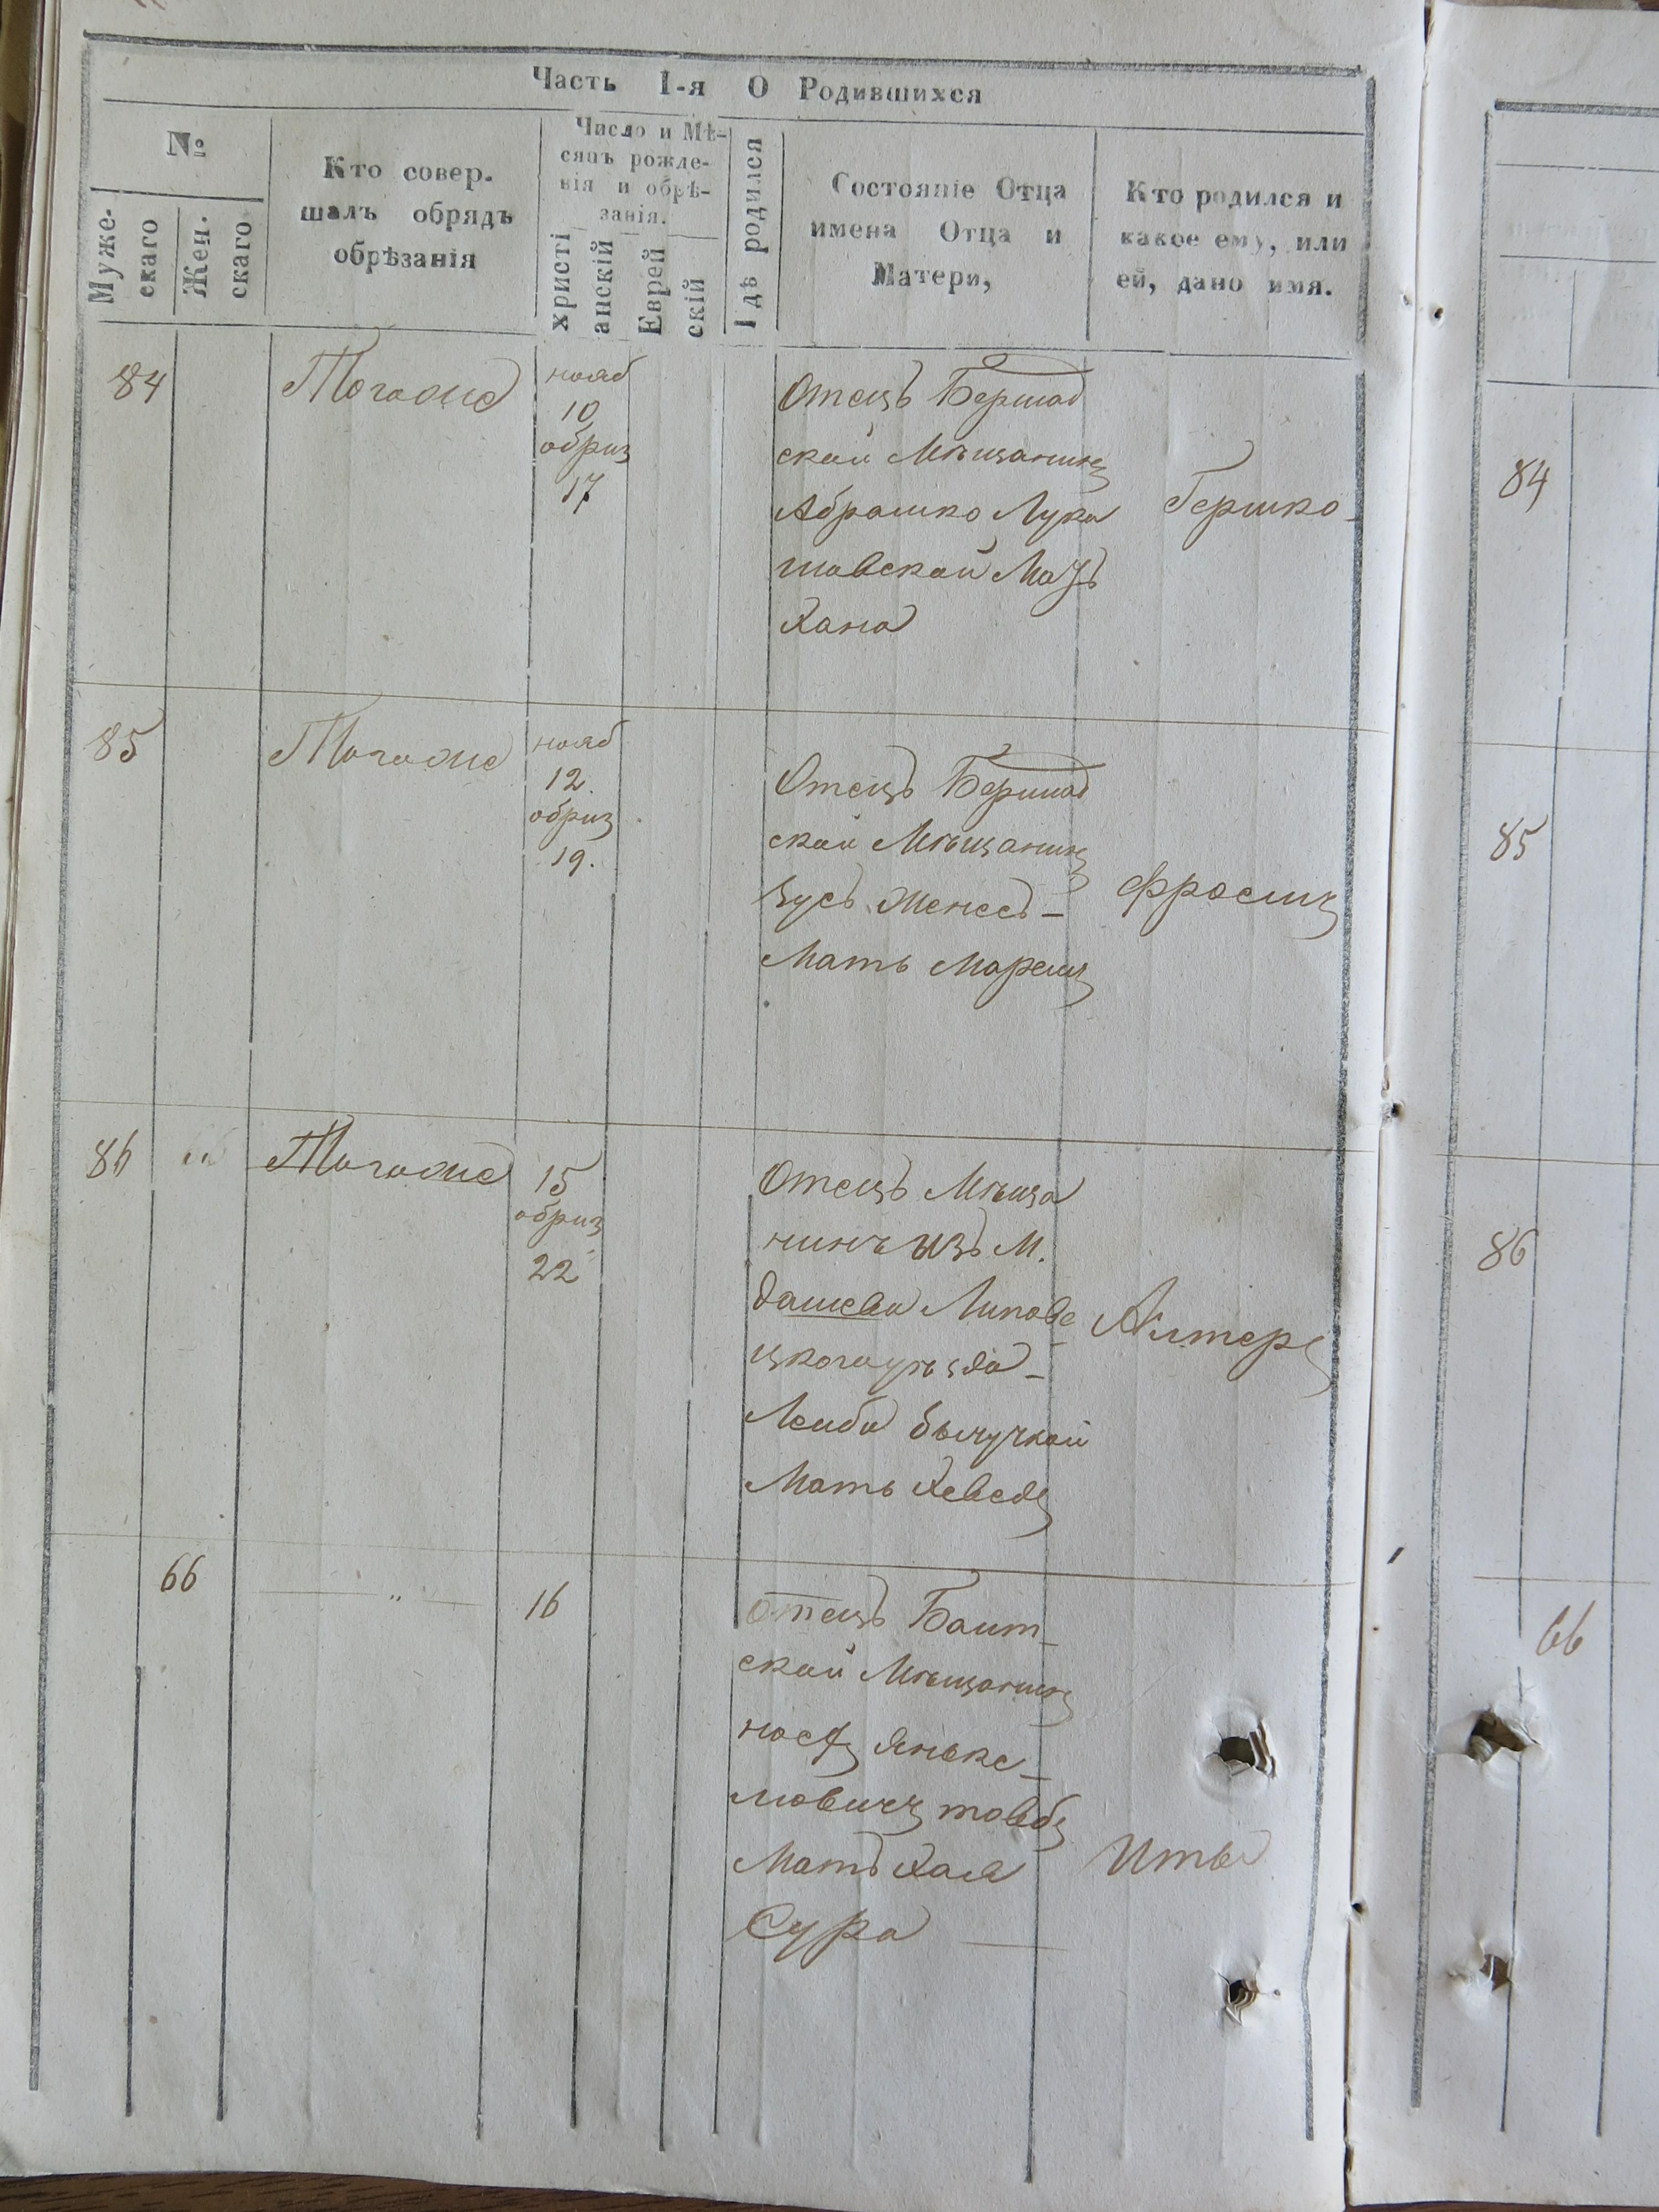 Часть I-я О Родившихся
№
Муже-
скаго
Жен.
скаго
Кто совер.
шалъ обрядъ
обрѣзанія
Число и Мѣ-
сяцъ рожде-
нія и обрѣ-
занія.
христі
анскій
Еврей
скій
Гдѣ родился
Состояніе Отца
имена Отца и
Матери,
Кто родился и
какое ему, или
ей, дано имя.
84
Тогоже
нояб
10
обриз
17
Отецъ Бершад
ской Мѣщанинъ
Абрашко Лука
шавской Мать
Хана
Гершко
84
85
Тогоже
нояб
12.
обриз
19.
Отецъ Бершад
ской Мѣщанинъ
Зусь
Мать
85
86
Тогоже
15
обриз
22
Отецъ Мѣща
нинъ изъ М.
Дашева Липове
цкого уѣзда
Лейба
Мать Хеведъ
Алтеръ
86
66
"
16
Отецъ Балт-
ской Мѣщанинъ
Янке-
левичъ
Мать Хая
Сура
Ита
66